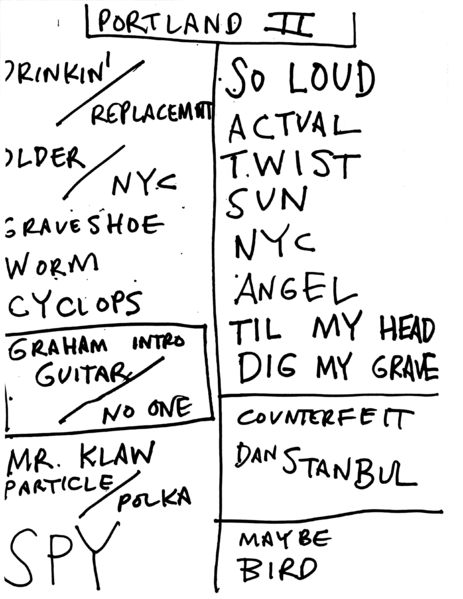 PORTLAND II
DRINKIN'
REPLACEMNT
OLDER
NYC
GRAVESHOE
WORM
CYCLOPS
GRAHAM INTRO
GUITAR
NO ONE
MR. KLAW
PARTICLE
POLKA
SPY
SO LOUD
ACTUAL
T.WIST
SUN
NYC
ANGEL
TIL MY HEAD
DIG MY GRAVE
COUNTERFEIT
DANSTANBUL
MAYBE
BIRD